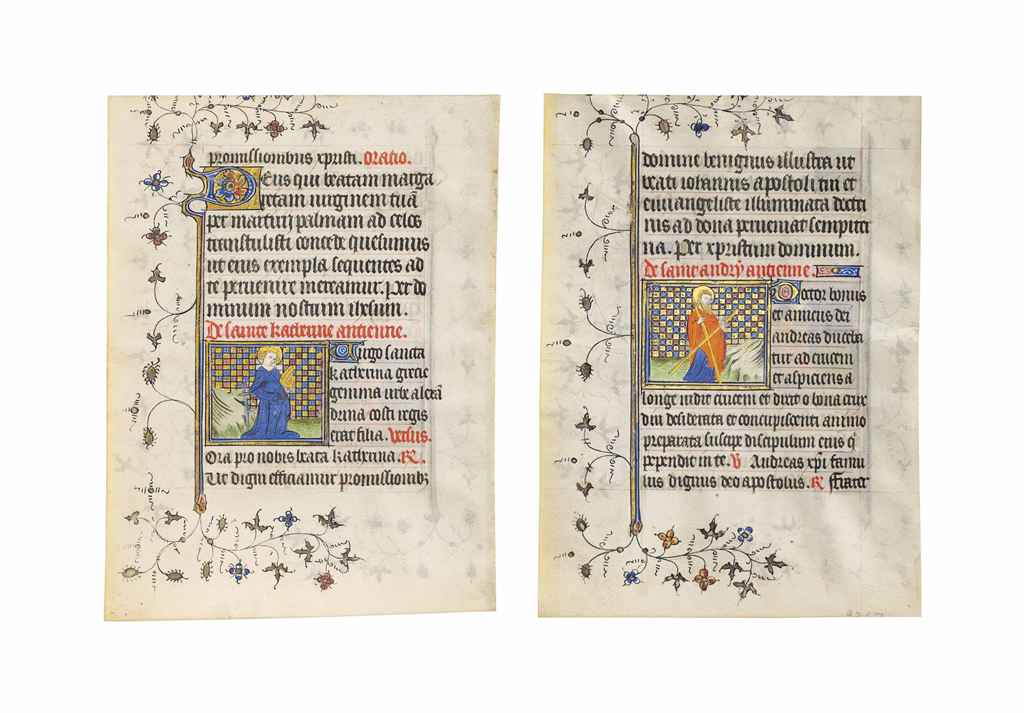 promissionibus xpristi. Oratio.
Deus qui beatam marga
retam virginem tuā
per martirij palmam ad celos
transtulisti concede quesumus
ut eius exempla sequentes ad
te pervenire mereamur. Per do
minum nostrum ihesum.
De sainte katherine antienne.
Virgo sancta
katherina grecie
gemma urbe alexā
drina costi regis
erat filia. Versus.
Ora pro nobis beata katherina. R.
Ut digni efficiamur promissionibz
domine benignus illustra ut
beati iohannis apostoli tui et
euuangeliste illuminata doctri
nis ad dona perveniat sempiter
na. Per xpristum dominum.
De saint andry antienne.
Doctor bonus
et amicus dei
andreas duceba
tur ad crucem
et aspiciens a
longe vidit crucem et dixit o bona crux
diu desiderata et concupiscenti animo
preparata suscipe discipulum eius q̄
pependit in te. V Andreas xp̄i famu
lus dignus deo apostolus. R ffrater